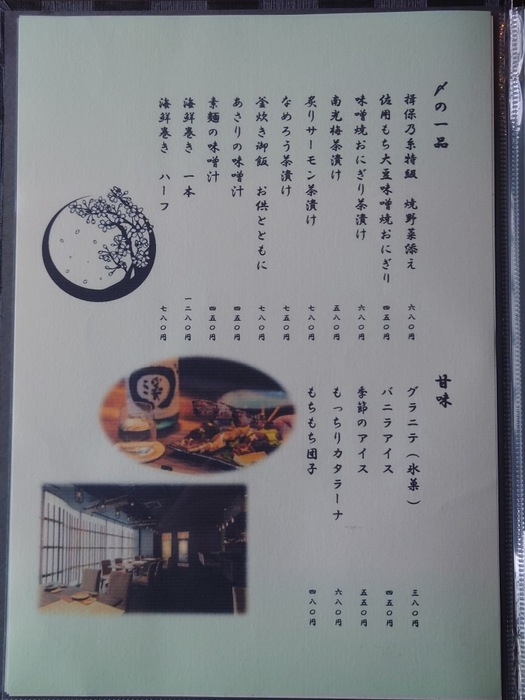 〆の一品
揖保乃糸特級　焼野菜添え　六八〇円
佐用もち大豆味噌焼おにぎり　四五〇円
味噌焼おにぎり茶漬け　六八〇円
南光梅茶漬け　五八〇円
炙りサーモン茶漬け　七八〇円
なめろう茶漬け　七五〇円
釜炊き御飯　お供とともに　七八〇円
あさりの味噌汁　四五〇円
素麺の味噌汁　四五〇円
海鮮巻き　一本　一二八〇円
海鮮巻き　ハーフ　七八〇円
甘味
グラニテ（氷菓）　三八〇円
バニラアイス　四五〇円
季節のアイス　五五〇円
もっちりカタラーナ　六八〇円
もちもち団子　四八〇円